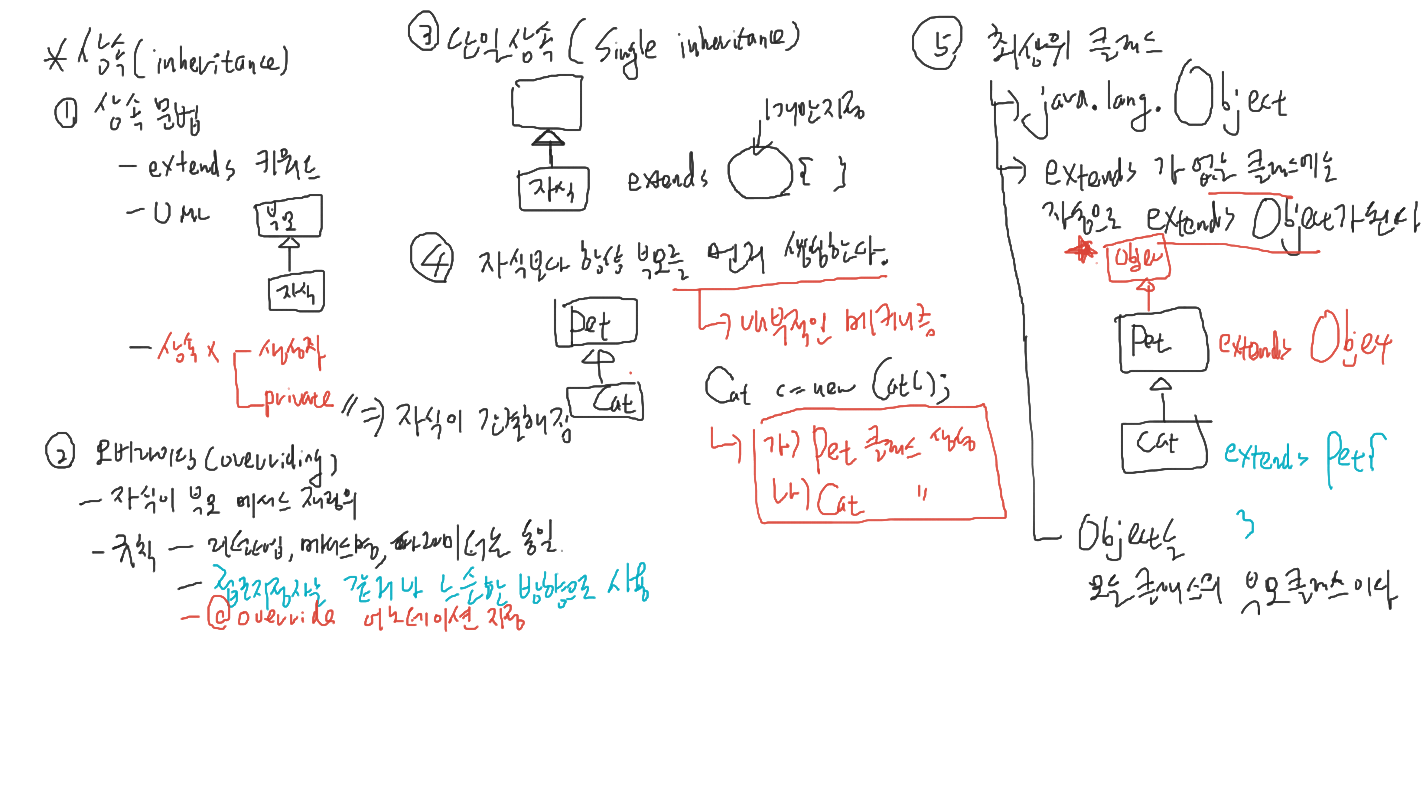 * 상속(inheritance)
① 상속 문법
- extends 키워드
- UML
부모
자식
- 상속 x - 생성자
- private // => 자식이 간결해짐
② 오버라이딩(overriding)
- 자식이 부모 메서드 재정의
- 규칙 - 리턴타입, 메서드명, 파라미터는 동일.
- 접근지정자는 같거나 느슨한 방향으로 사용
- @override 어노테이션 지정
③ 단일상속(Single inheritance)
1개만지정
자식 extends { }
④ 자식보다 항상 부모를 먼저 생성한다.
-> 내부적인 메커니즘
Pet
Cat
Cat c = new Cat();
-> 가) Pet 클래스 생성
나) Cat "
⑤ 최상위 클래스
-> java.lang.Object
-> extends 가 없는 클래스에는
자동으로 extends Object가 된다
★ Object
Pet extends Object
Cat extends Pet{
}
- Object는
모든 클래스의 부모클래스이다